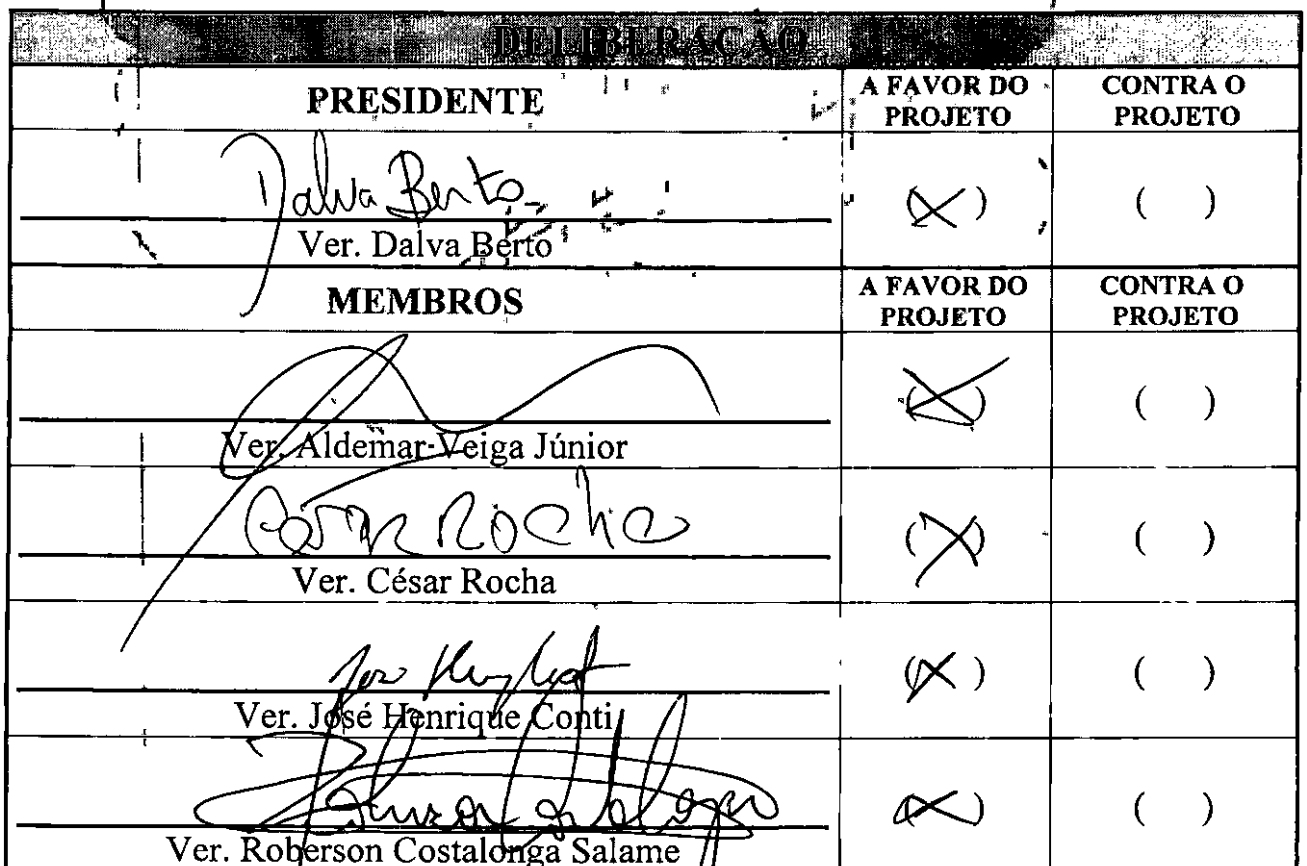 DELIBERAÇÃO
PRESIDENTE
A FAVOR DO PROJETO
CONTRA O PROJETO
Dalva Berto
(X) ( )
Ver. Dalva Berto
MEMBROS
A FAVOR DO PROJETO
CONTRA O PROJETO
(X) ( )
Ver. Aldemar Veiga Júnior
César Rocha
(X) ( )
Ver. César Rocha
(X) ( )
Ver. José Henrique Conti
(X) ( )
Ver. Roberson Costalonga Salame